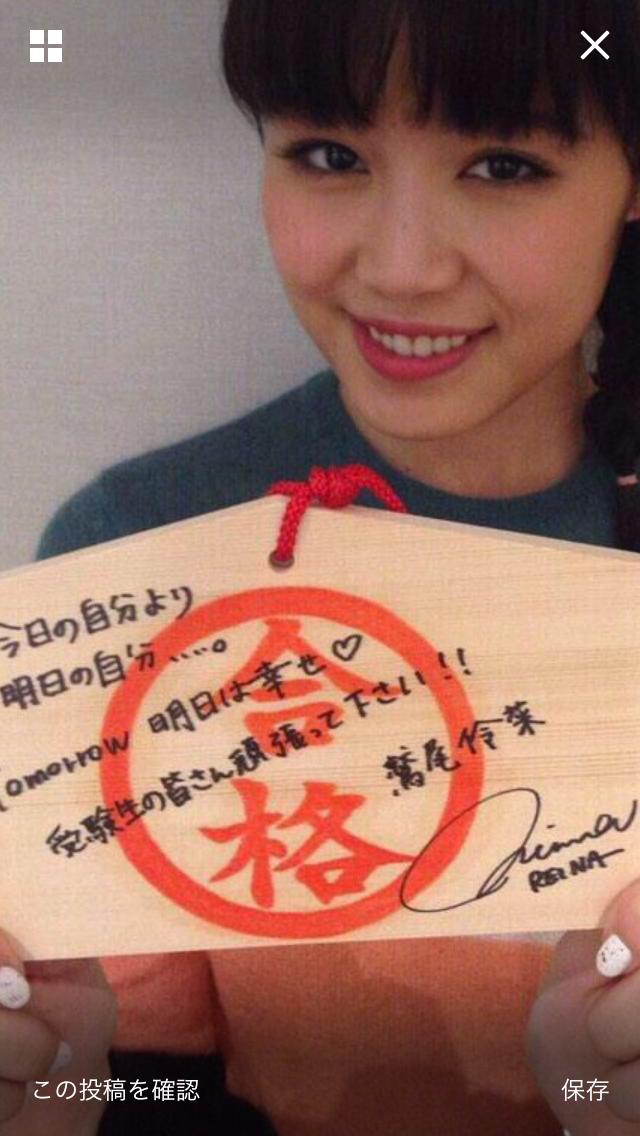 今日の自分より
明日の自分....。
Tomorrow 明日は幸せ♡
受験生の皆さん頑張って下さい!!
鷲尾伶菜
Reina
REINA
合格
この投稿を確認
保存